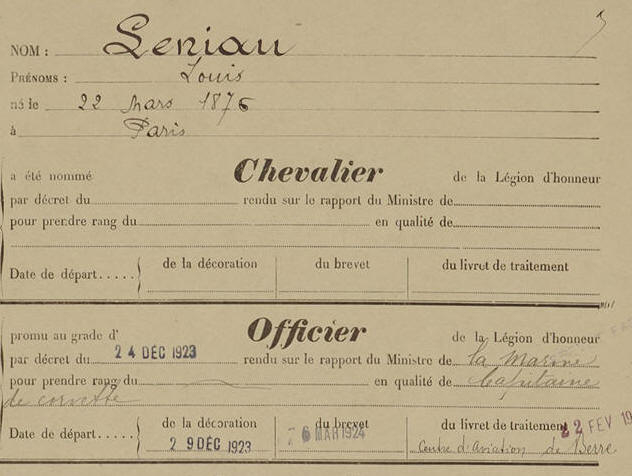 NOM : Leniau
PRÉNOMS : Louis
né le 22 Mars 1876
à Paris
a été nommé Chevalier de la Légion d'honneur
par décret du rendu sur le rapport du Ministre de
pour prendre rang du en qualité de
Date de départ..... de la décoration du brevet du livret de traitement
promu au grade d' Officier de la Légion d'honneur
par décret du 24 DÉC 1923 rendu sur le rapport du Ministre de la Marine
pour prendre rang du en qualité de Capitaine
de corvette
Date de départ..... de la décoration du brevet du livret de traitement
29 DÉC 1923 MAR 1924 22 FEV
Centre d'aviation de Berre